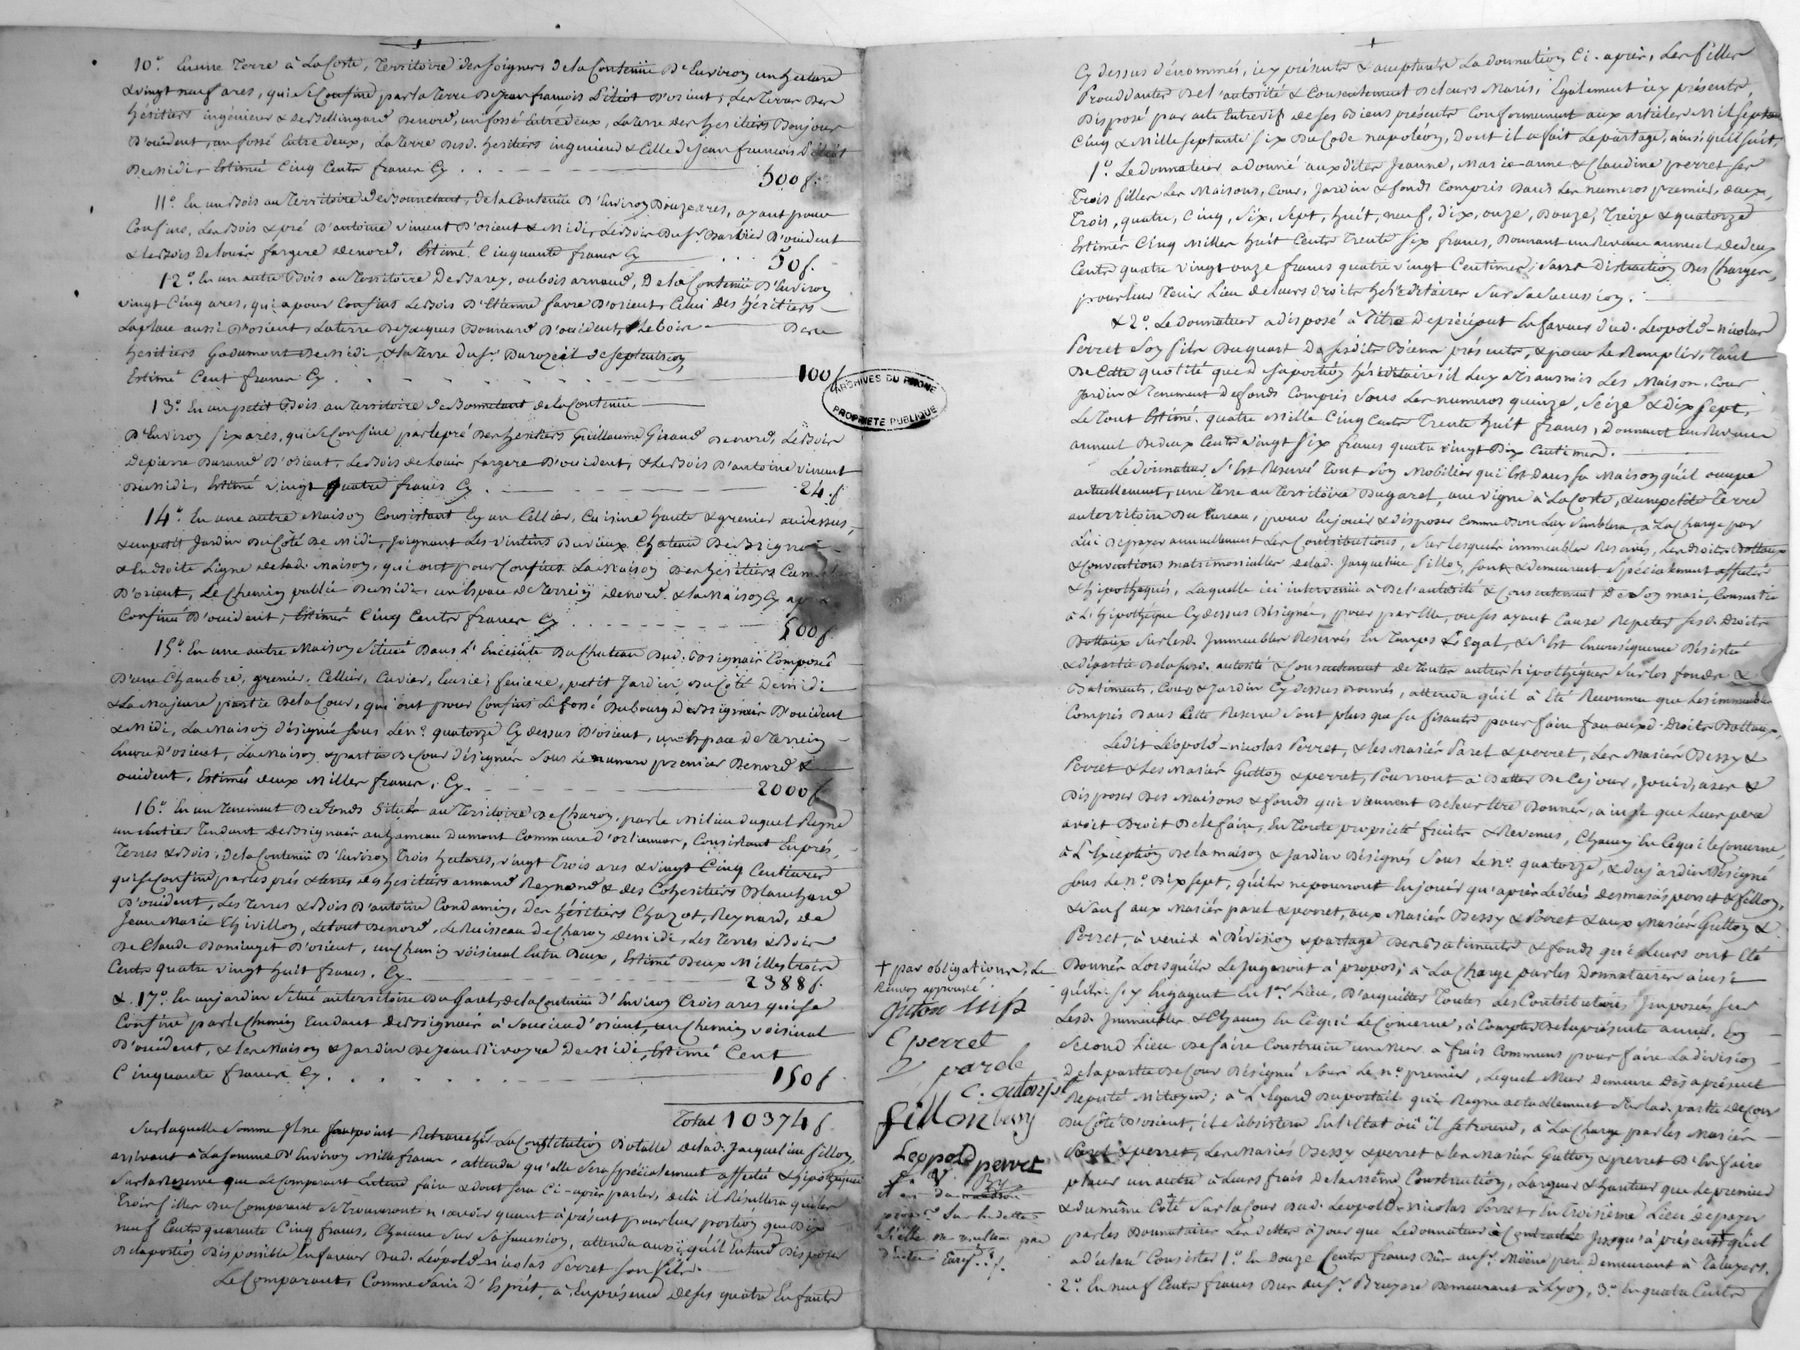 10.° En une Terre à La Coste, Territoire des soigners de la Contenüe D'Environ un hectare
& vingt neuf ares, qui se Confine par la Terre De Jean françois Pitiot D'orient, Les Terres Des
héritiers ingénieur & De Bellingard Denord, un fossé Entre deux, La Terre Des héritiers Bonjour
D'occident, un fossé Entre deux, La Terre Desd. héritiers ingénieux & Celle de Jean françois Pitiot
De Midi, Estimée Cinq Cents francs Cy . . . 500 f.
11.° En un Bois au Territoire de Bonnetant, De la Contenüe D'Environ Douze ares, ayant pour
Confins, Les Bois & pré D'antoine vincent D'orient & Midi, Le Bois Du Sr. Barbier D'occident
& Le Bois De Louis fargere Denord, Estimé Cinquante francs Cy . . . 50 f.
12.° En un autre Bois au Territoire De Barey, ou bois arnaud, De la Contenüe D'Environ
vingt Cinq ares, qui a pour Confins Le Bois D'Etienne favre D'orient, Celui Des héritiers
Laplace aussi D'orient, La Terre De Jacques Bonnard D'occident, Le Bois Des
héritiers Godumont De Midi, & la Terre du Sr. Durozeil de septentrion,
Estimé Cent francs Cy . . . 100 f
13.° En un petit Bois au Territoire de Bonnetant de la Contenüe
D'Environ six ares, qui se Confine par le pré Des héritiers Guillaume Giraud Denord, Le Bois
De pierre Durand D'orient, Le Bois de Louis fargere D'occident, & Le Bois D'antoine vincent
De Midi, Estimé vingt quatre francs Cy . . . 24 f
14.° En une autre Maison Consistant En un Cellier, Cuisine haute & grenier au dessus,
& un petit Jardin Du Coté De Midi, joignant Les vintins Du vieux Chateau De Brignais
& En droite Ligne de lad. Maison, qui ont pour Confins La Maison Des héritiers
D'orient, Le Chemin public De Midi, un Espace de Terrein Denord & la Maison Cy après
Confinée D'occident, Estimés Cinq Cents francs Cy . . . 500 f
15.° En une autre Maison Située Dans L'Enceinte Du Chateau Dud. Brignais Composée
D'une Chambre, grenier, Cellier, Cuvier, Ecurie, feniere, petit Jardin Du Côté De midi
& La Majeure partie De la Cour, qui ont pour Confins Le fossé Du bourg de Brignais D'occident
& Midi, La Maison désignée sous Le n.° quatorze Cy dessus D'orient, un Espace de Terrein
Encore D'orient, La Maison & partie De Cour désignée Sous Le numero premier Denord &
occident, Estimés deux Milles francs, Cy . . . 2000 f
16.° En un Tenement De fonds Situés au Territoire De Charon, par le Milieu duquel Regne
un sentier Tendant de Brignais au hameau Dumont Commune d'orliennas, Consistant En prés,
Terres & Bois, De la Contenüe D'Environ Trois hectares, vingt Trois ares & vingt Cinq Centiares
qui se Confine par les prés & terres des héritiers armand Reynard & des Cohéritiers Blanchard
D'occident, Les Terres & Bois D'antoine Condamin, Des héritiers Chazot, Reynard, de
Jean Marie Thivillon, Le tout Denord, Le Ruisseau de Charon de midi, Les Terres & Bois
De Claude Dominget D'orient, un Chemin voisinal Entre Deux, Estimé Deux Milles trois
Cents quatre vingt huit francs, Cy . . . 2388 f.
& 17.° En un jardin Situé au territoire Du Garet, de la Contenüe d'Environ Trois ares qui se
Confine par le Chemin Tendant de Brignais à Soucieu d'orient, un Chemin voisinal
D'occident, & les Maison & Jardin De Jean Rivoyre De Midi, Estimé Cent
Cinquante francs Cy . . . 150 f
Total 10374 f.
Sur laquelle Somme Il ne faut point Retrancher La Constitution Dotalle de lad. Jacqueline fillon,
arrivant à La Somme D'Environ Mille francs, attendu qu'elle Sera spécialement affectée & hipothéquée
Sur la Reserve que Le Comparant Entend faire & dont sera Ci-après parler, De là il Résultera que les
Trois filles Du Comparant Se Trouveront n'avoir quant à présent pour leur portion que Dix
neuf Cents quarante Cinq francs, Chacune Sur Sa Succession, attendu aussi qu'il Entend Disposer
De la portion Disponible En faveur Dud. Léopold-nicolas Perret son fils.
Le Comparant, Comme Sain D'Esprit, a En présence De ses quatre Enfants
ARCHIVES DU RHONE
PROPRIÉTÉ PUBLIQUE
Cy dessus dénommés, icy présents & acceptants La donnation Ci-après, Les filles
Procédantes De L'autorité & Consentement De leurs Maris, Egalement icy présents,
Disposé par acte Entrevif de ses Biens présents Conformement aux articles Mil septante
Cinq & Mille septante six Du Code napoléon, Dont il a fait Le partage, ainsi qu'il suit,
1.° Le donnateur a donné auxdites Jeanne, Marie-anne & Claudine perret ses
Trois filles Les Maisons, Cour, Jardin & fonds Compris Dans Les numeros premier, deux,
Trois, quatre, Cinq, Six, Sept, huit, neuf, dix, onze, Douze, Treize & quatorze
Estimés Cinq Milles huit Cents Trente Six francs, Donnant un Revenu annuel De deux
Cents quatre vingt onze francs quatre vingt Centimes, Sans distraction Des Charges,
pour leur Tenir Lieu de leurs droits héréditaires Sur Sa Succession.
& 2.° Le donnateur a disposé à Titre De préciput En faveur dud. Léopold-nicolas
Perret Son fils Du quart De sesdits Biens présents, & pour Le Remplir, Tant
De Cette quotité que de sa portion héréditaire, il Luy a Transmis Les Maison, Cour
Jardin & Tenement De fonds Compris Sous Les numeros quinze, Seize & dix sept,
Le Tout Estimé quatre Mille Cinq Cents Trente huit francs, Donnant un Revenu
annuel De deux Cents vingt six francs quatre vingt Dix Centimes.
Le donnateur S'Est Réservé Tout Son Mobilier qui Est Dans Sa Maison qu'il occupe
actuellement, une Terre au Territoire Du garet, une vigne à La Coste, & une petite Terre
au territoire Du Cureau, pour En jouir & disposer Comme Bon Luy Semblera, à La Charge par
Lui De payer annuellement Les Contributions, Sur lesquels immeubles Réservés, Les Droits Dottaux
& Conventions matrimonialles de lad. Jacqueline fillon sont & demeurent Spécialement affectés
& hipothéqués, Laquelle ici intervenüe à De L'autorité & Consentement De Son mari, Consent
à L'hipothéque Cy dessus Désignée, pour par Elle, ou ses ayant Cause Repeter sesd. Droits
Dottaux Sur lesd. Immeubles Réservés En Temps Légal, & S'Est En conséquence Désistée
& départie De la susd. autorité & Consentement de Toutes autres hipothéques Sur les fonds &
Batiments, Cour & Jardin Cy dessus donnés, attendu qu'il a Eté Reconnu que Les immeubles
Compris Dans Cette Reserve Sont plus que Suffisants pour faire face auxd. Droits Dottaux.
Ledit Léopold-nicolas Perret, & les Mariés Parel & perret, Les Mariés Bessy &
Perret & Les Mariés Gutton & perret, Pourront à Datter De Ce jour, Jouir, user &
Disposer Des Maisons & fonds qui viennent De leur être Donnés, ainsi que Leur pere
avoit Droit De le faire, En Toute propriété fruits & Revenus, Chacun En Ce qui Le Concerne,
à L'Exception De la maison & Jardin Désignés Sous Le N.° quatorze, & du jardin Désigné
Sous Le N.° Dix sept, qu'ils ne pourront En jouir qu'après Le décès des mariés perret & fillon,
& Sauf aux Mariés parel & perret, aux Mariés Bessy & Perret & aux Mariés Gutton &
Perret, à venir à Division & partage Des Batiments & fonds qui Leurs ont Eté
Donnés Lorsqu'ils Le Jugeront à propos, à La Charge par les Donnataires ainsi
qu'ils S'y Engagent En 1.er Lieu, D'acquitter Toutes Les Contributions Imposées Sur
Lesd. Immeubles & Chacun En Ce qui Le Concerne, à Compter De la présente année, En
Second Lieu De faire Construire un Mur à frais Communs pour faire La division
De la partie De Cour Désignée Sous Le N.° premier, Lequel Mur Demeure Dès à présent
Réputé Mitoyen; à L'Egard Du portail qui Regne actuellement Sur lad. partie de Cour
Du Côté D'orient, il Subsistera En L'Etat où il se trouve, à La Charge par les Mariés
Parel & perret, Les Mariés Bessy & perret & les Mariés Gutton & perret D'En faire
placer un autre à Leurs frais De la Même Construction, Largeur & hauteur que Le premier
& du même Côté Sur la Cour Dud. Léopold-nicolas Perret, En Troisième Lieu De payer
par les Donnataires Les dettes à jour que Le donnateur a Contractées Jusqu'à présent † qu'il
a déclaré Consister 1.° En Douze Cents francs Dûs au Sr. Moine pere Demeurant à Taluyers.
2.° En neuf Cents francs Dus au Sr. Bruyere Demeurant à Lyon, 3.° En quatre Cents
† par obligations, Le
Renvoi approuvé
guton
E perret
parele
C. guton
fillon bessy
Leopold perret